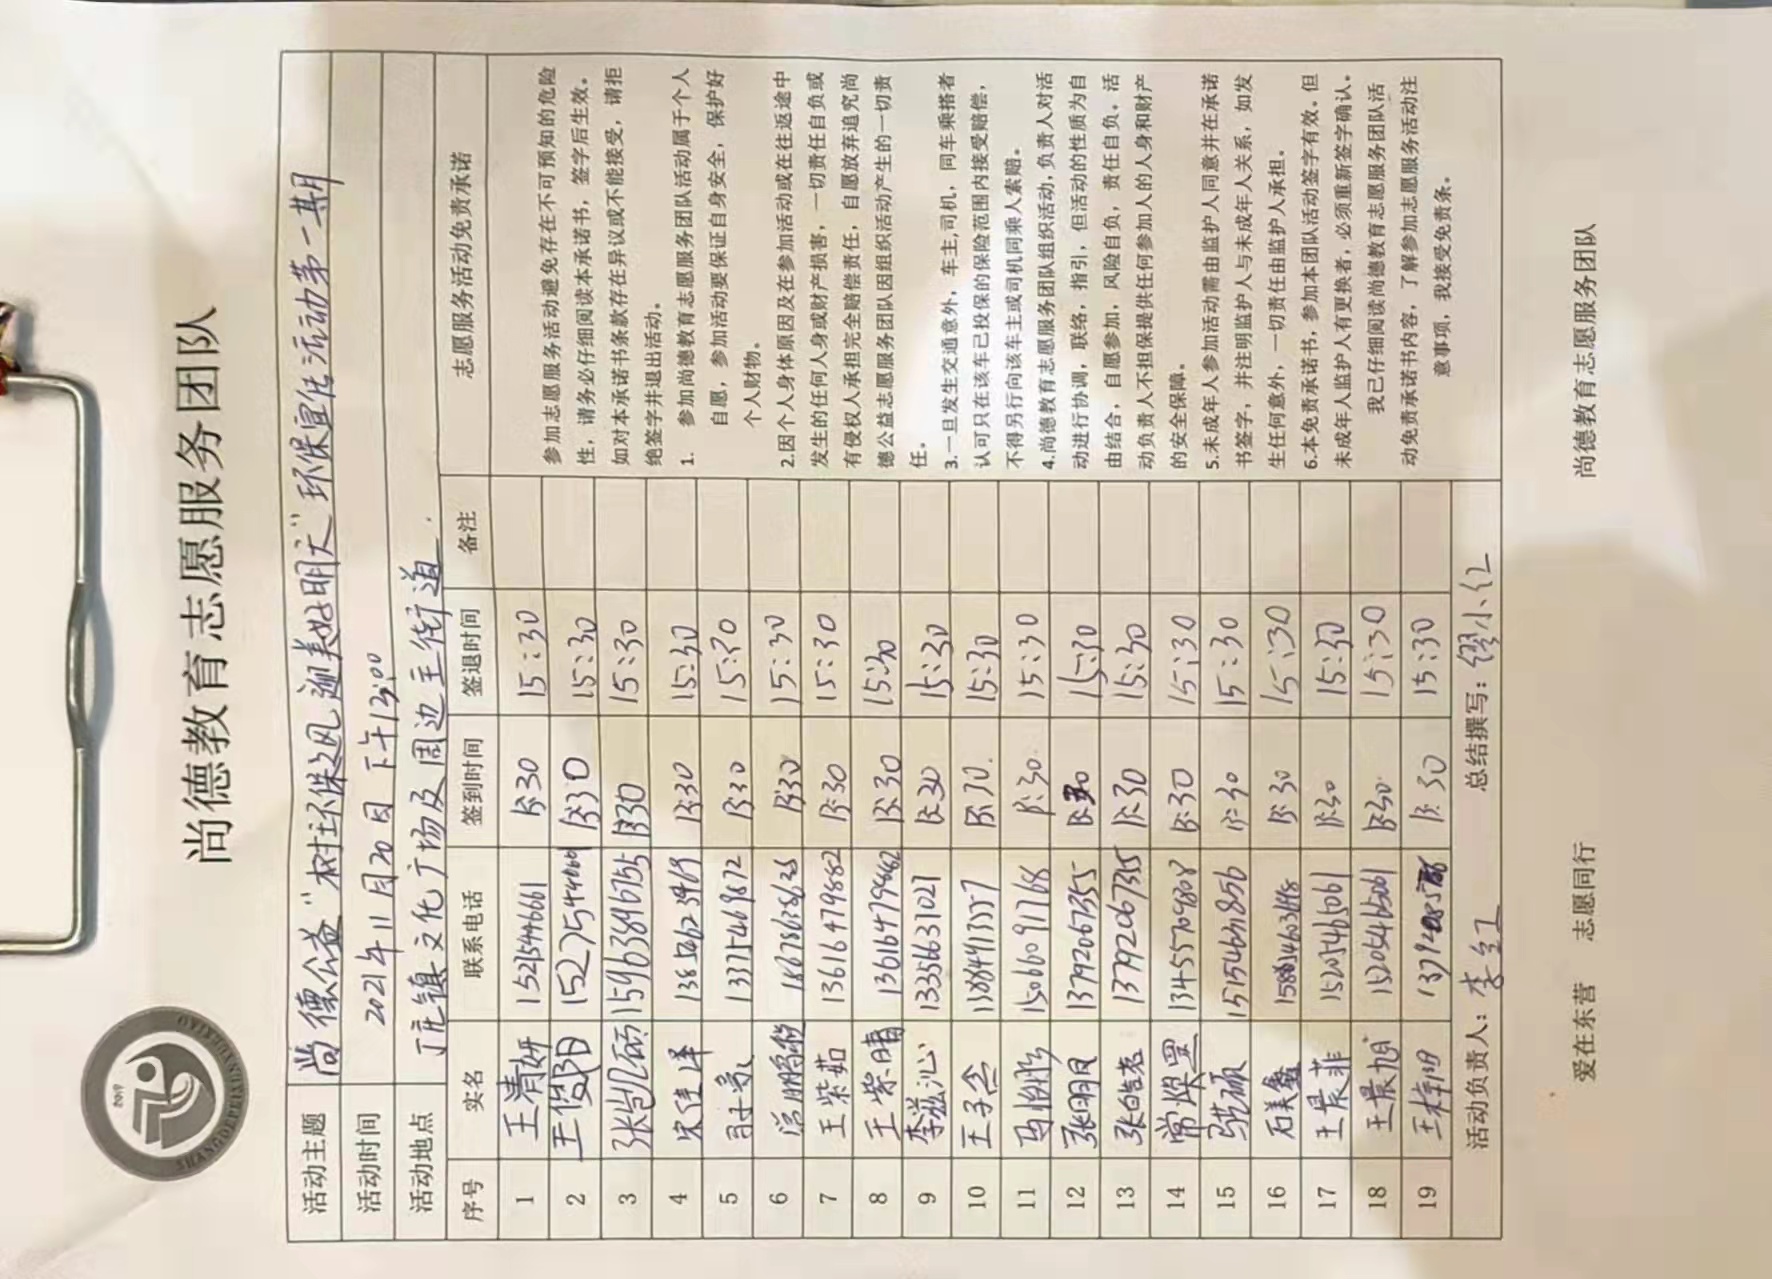 SHANGDEPEIXUNXUEXIAO
尚德教育志愿服务团队
活动主题 尚德公益"树环保之风 迎美好明天"环保宣传活动第一期
活动时间 2021年11月20日 下午13:00
活动地点 丁庄镇文化广场及周边主街道.
序号 实名 联系电话 签到时间 签退时间 备注 志愿服务活动免责承诺
1 王清妍 13:30 15:30
2 王俊 13:30 15:30
3 15963896755 13:30 15:30
4 宋佳泽 13:30 15:30
5 133715469872 13:30 15:30
6 13:30 15:30
7 王紫茹 13616479882 13:30 15:30
8 王紫晴 13616479882 13:30 15:30
9 李滋沁 13356631021 13:30 15:30
10 王子含 13:30 15:30
11 15066091768 13:30 15:30
12 张明月 13792067355 13:30 15:30
13 张皓 13792067355 13:30 15:30
14 常煜 13455709808 13:30 15:30
15 硕 13:30 15:30
16 石美鑫 13:30 15:30
17 王晨菲 13:30 15:30
18 王晨旭 13:30 15:30
19 王梓 13:30 15:30
参加志愿服务活动避免存在不可预知的危险
性，请务必仔细阅读本承诺书，签字后生效。
如对本承诺书条款存在异议或不能接受，请拒
绝签字并退出活动。
1. 参加尚德教育志愿服务团队活动属于个人
自愿，参加活动要保证自身安全，保护好
个人财物。
2.因个人身体原因及在参加活动或在往返途中
发生的任何人身或财产损害，一切责任自负或
有侵权人承担完全赔偿责任，自愿放弃追究尚
德公益志愿服务团队因组织活动产生的一切责
任。
3.一旦发生交通意外，车主,司机，同车乘搭者
认可只在该车已投保的保险范围内接受赔偿，
不得另行向该车主或司机同乘人索赔。
4.尚德教育志愿服务团队组织活动,负责人对活
动进行协调，联络，指引，但活动的性质为自
由结合，自愿参加，风险自负，责任自负。活
动负责人不担保提供任何参加人的人身和财产
的安全保障。
5.未成年人参加活动需由监护人同意并在承诺
书签字，并注明监护人与未成年人关系，如发
生任何意外，一切责任由监护人承担。
6.本免责承诺书，参加本团队活动签字有效。但
未成年人监护人有更换者，必须重新签字确认。
我已仔细阅读尚德教育志愿服务团队活
动免责承诺书内容，了解参加志愿服务活动注
意事项，我接受免责条。
活动负责人：李红 总结撰写：缪小红
爱在东营 志愿同行 尚德教育志愿服务团队